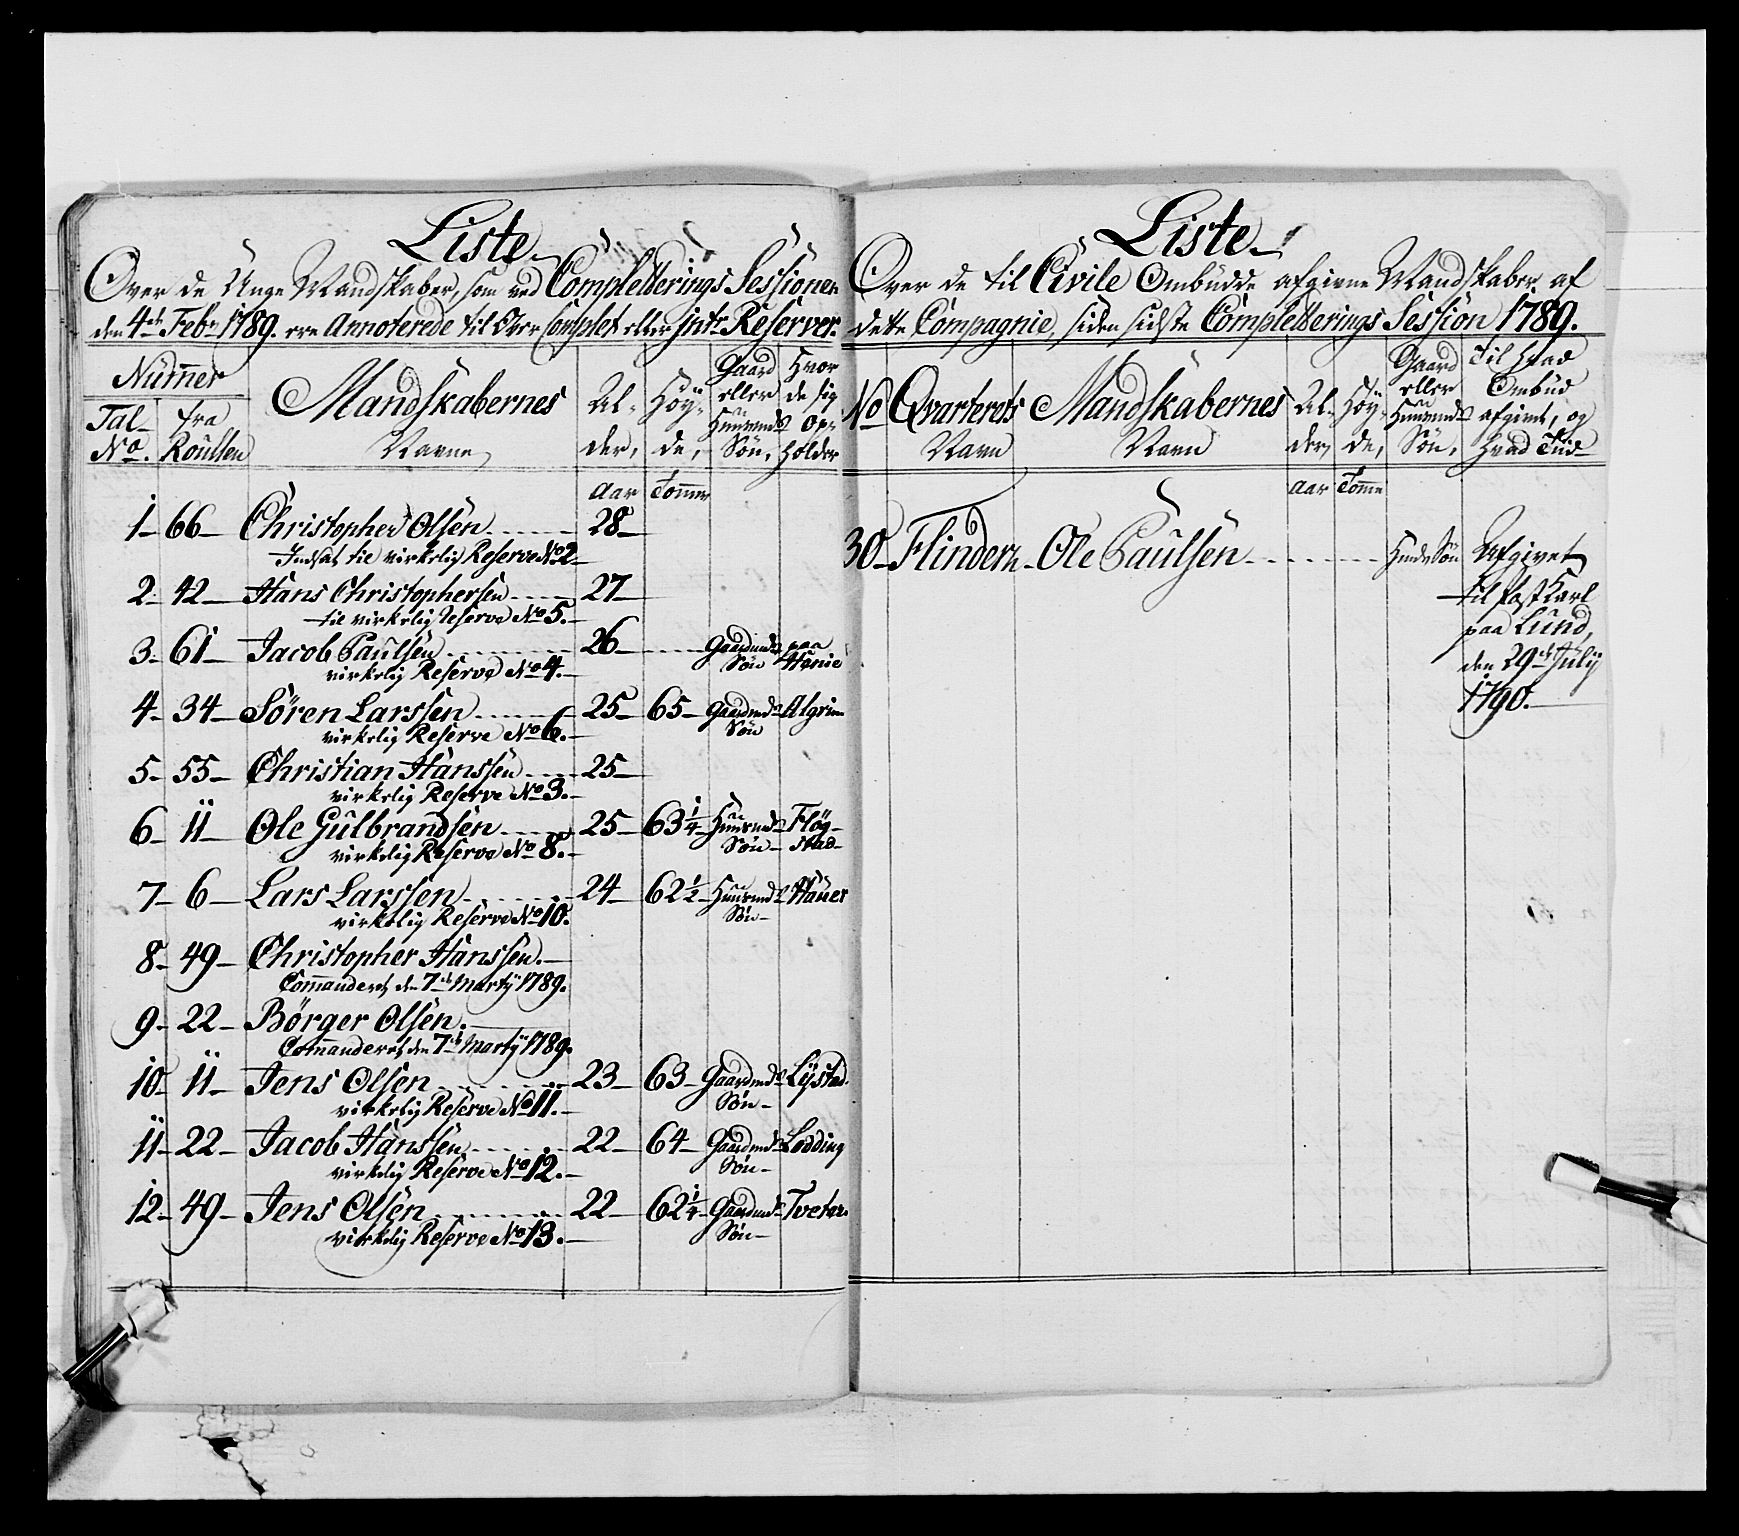 Liste
Over de Unge Mandskaber, som ved Completterings Sessionen
den 4de Febr 1789. ere Annoterede til Over Complet eller Reserver.
Nummer
Tal No. fra Roullen
Mandskabernes Navne
Alder, Höyde, Gaard eller Huusmds Sön, Hvor de sig opholder
Aar Tommer
1 66 Christopher Olsen 28
Indsat til virkelig Reserve No 2
2 42 Hans Christophersen 27
til virkelig Reserve No 5.
3 61 Jacob Paulsen 26 Gaardmds Sön paa Hanie
virkelig Reserve No 4.
4 34 Sören Larssen 25 65 Gaardmds Sön Algrim
virkelig Reserve No 6.
5 55 Christian Hanssen 25
virkelig Reserve No 3.
6 11 Ole Gulbrandsen 25 63 1/4 Huusmds Sön Flögstad
virkelig Reserve No 8.
7 6 Lars Larssen 24 62 1/2 Huusmds Sön Hauer
virkelig Reserve No 10.
8 49 Christopher Hanssen.
Commanderet den 7de Martij 1789.
9 22 Börger Olsen.
Commanderet den 7de Martij 1789.
10 11 Jens Olsen 23 63 Gaardmds Sön Lystad.
virkelig Reserve No 11.
11 22 Jacob Hanssen 22 64 Gaardmds Sön Lodding
virkelig Reserve No 12.
12 49 Jens Olsen 22 62 1/4 Gaardmds Sön Tveter.
virkelig Reserve No 13.
Liste
Over de til Civile Ombudde afgivne Mandskaber af
dette Compagnie, siden sidste Completterings Session 1789.
No Qvarterets Navn
Mandskabernes Navn
Alder, Höyde, Gaard eller Huusmds Sön, Til hvad Ombud afgivet, og hvad Tid
Aar Tomme
30 Flindern Ole Paulsen Huusmds Sön Afgivet
til Post Karl
paa Lund,
den 29de Julij
1790.